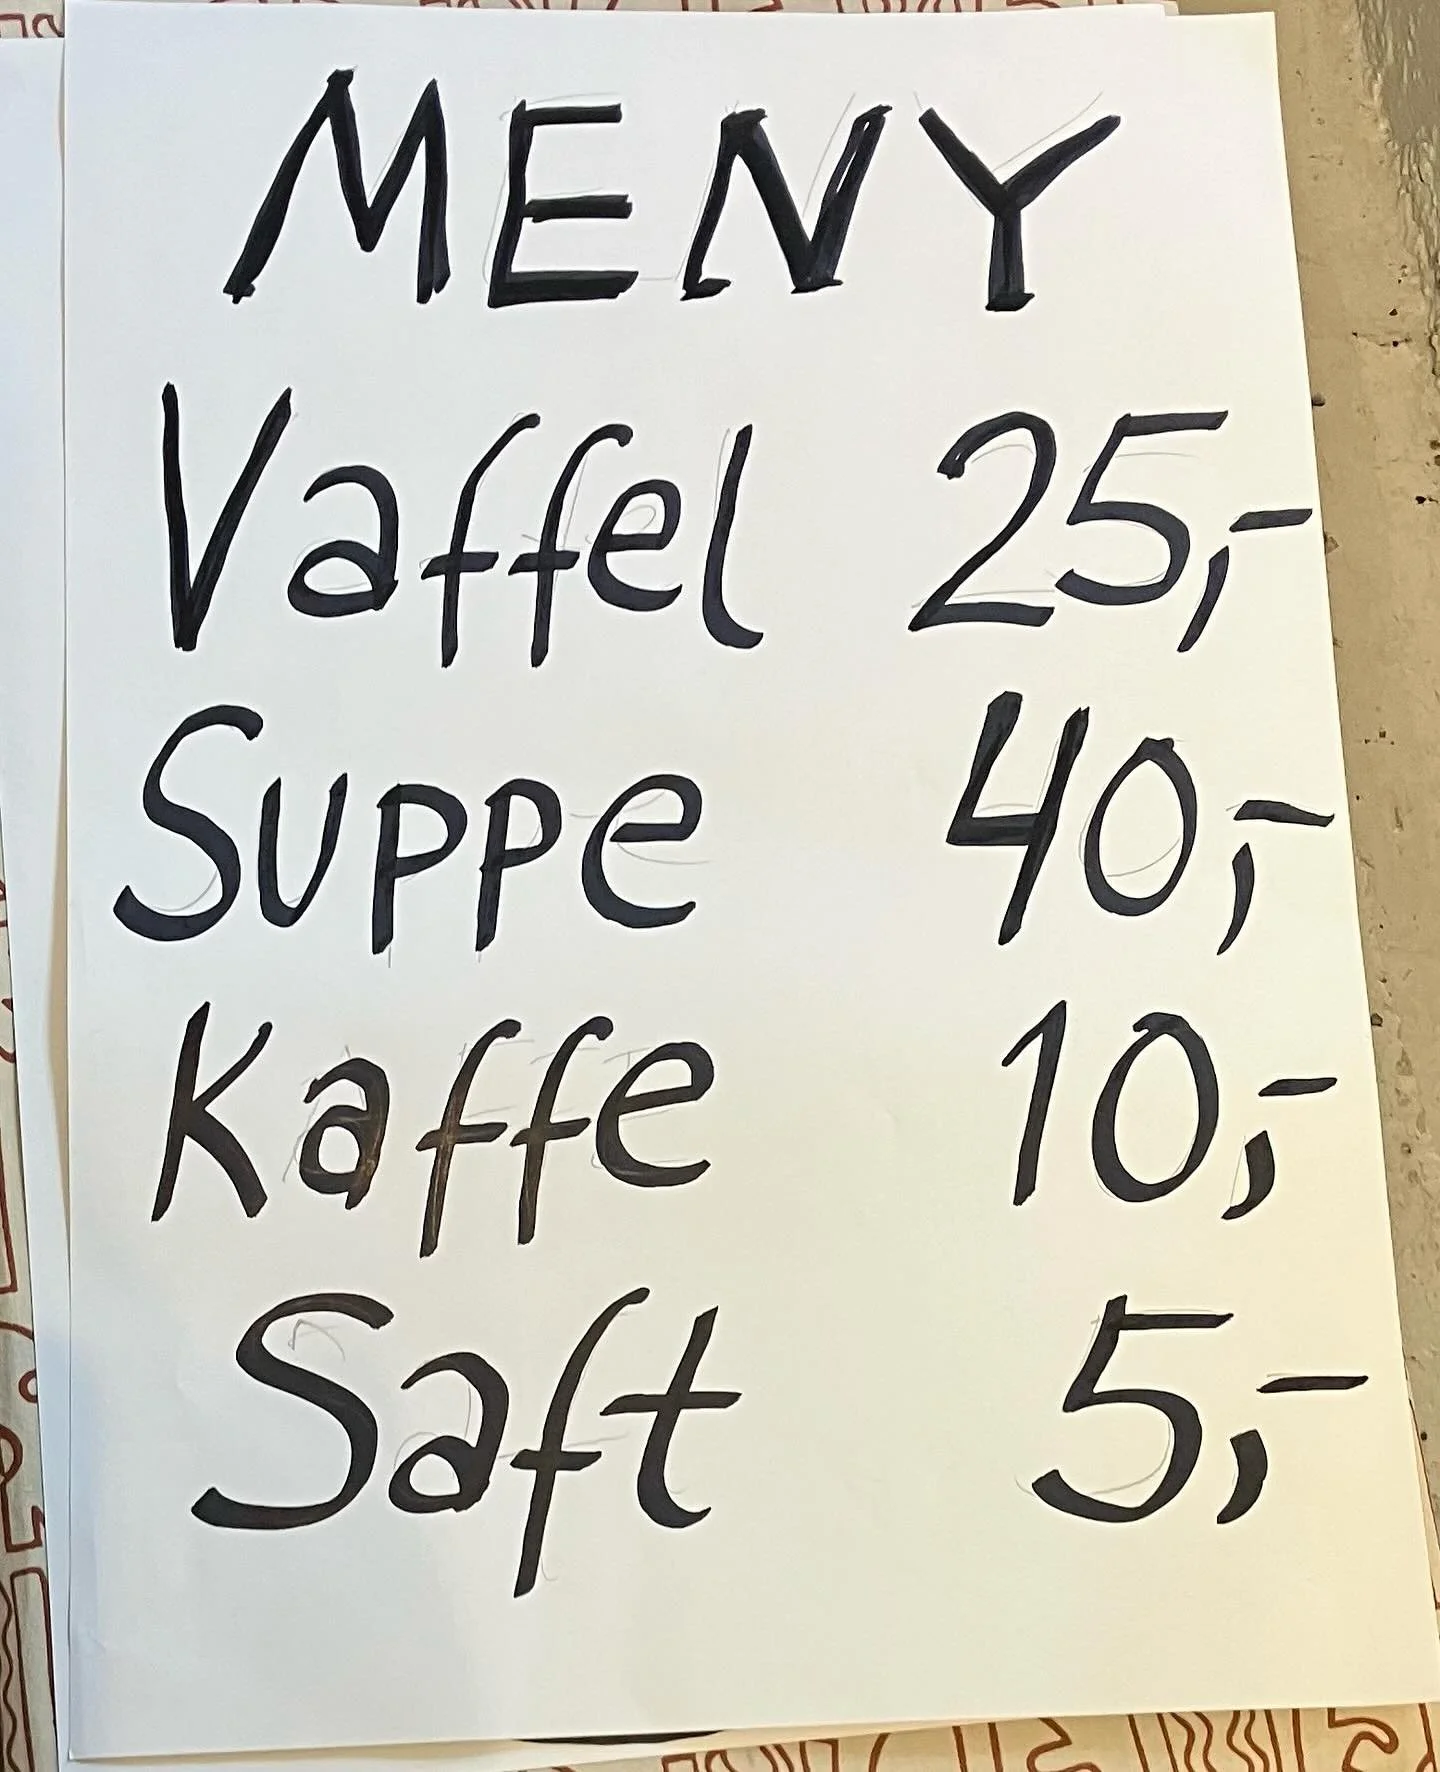 MENY
Vaffel 25,-
Suppe 40,-
Kaffe 10,-
Saft 5,-